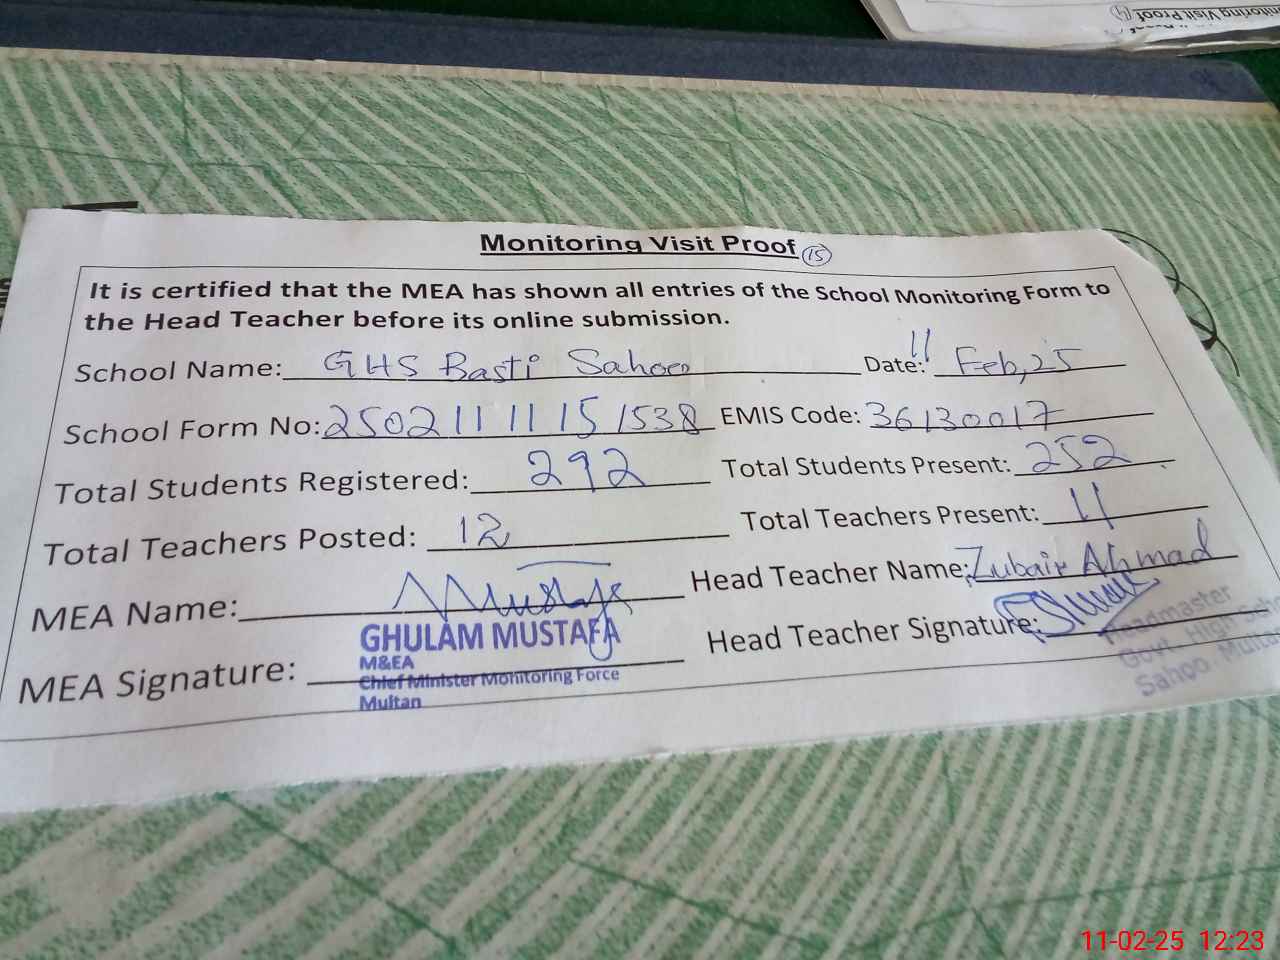 Monitoring Visit Proof
Monitoring Visit Proof 15
It is certified that the MEA has shown all entries of the School Monitoring Form to
the Head Teacher before its online submission.
School Name: GHS Basti Sahoo Date: 11 Feb, 25
School Form No: 250211 11 15 1538 EMIS Code: 36130017
Total Students Registered: 292 Total Students Present: 252
Total Teachers Posted: 12 Total Teachers Present: 11
MEA Name: Mustafa Head Teacher Name: Zubair Ahmad
GHULAM MUSTAFA
M&EA
Chief Minister Monitoring Force
Multan
MEA Signature: Head Teacher Signature:
Headmaster
Govt. High
Sahoo. Multan
11-02-25 12:23